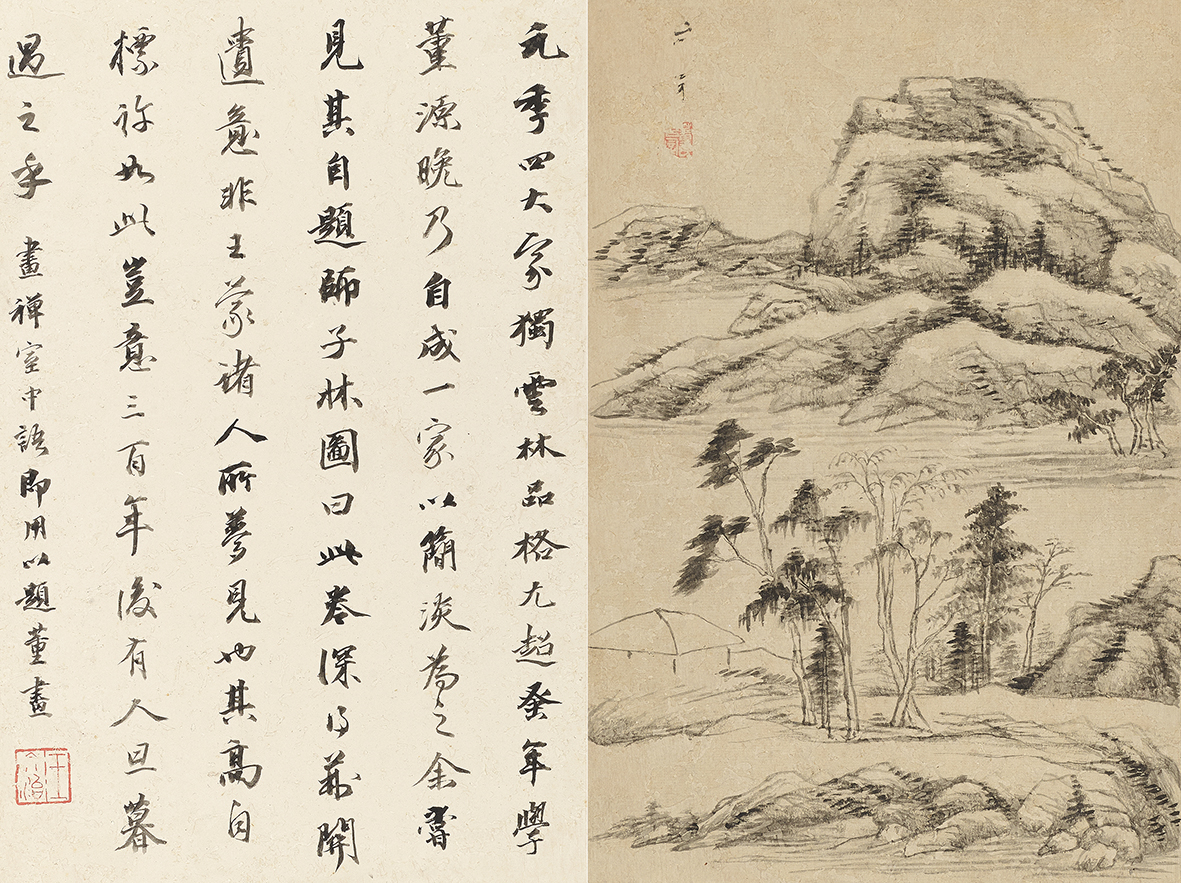 玄宰
元季四大家獨雲林品格尤超蚤年學
董源晚乃自成一家以簡淡為之余嘗
見其自題師子林圖曰此卷深得荊關
遺意非王蒙諸人所夢見也其高自
標許如此豈意三百年後有人旦暮
遇之乎 畫禪室中語即用以題董畫